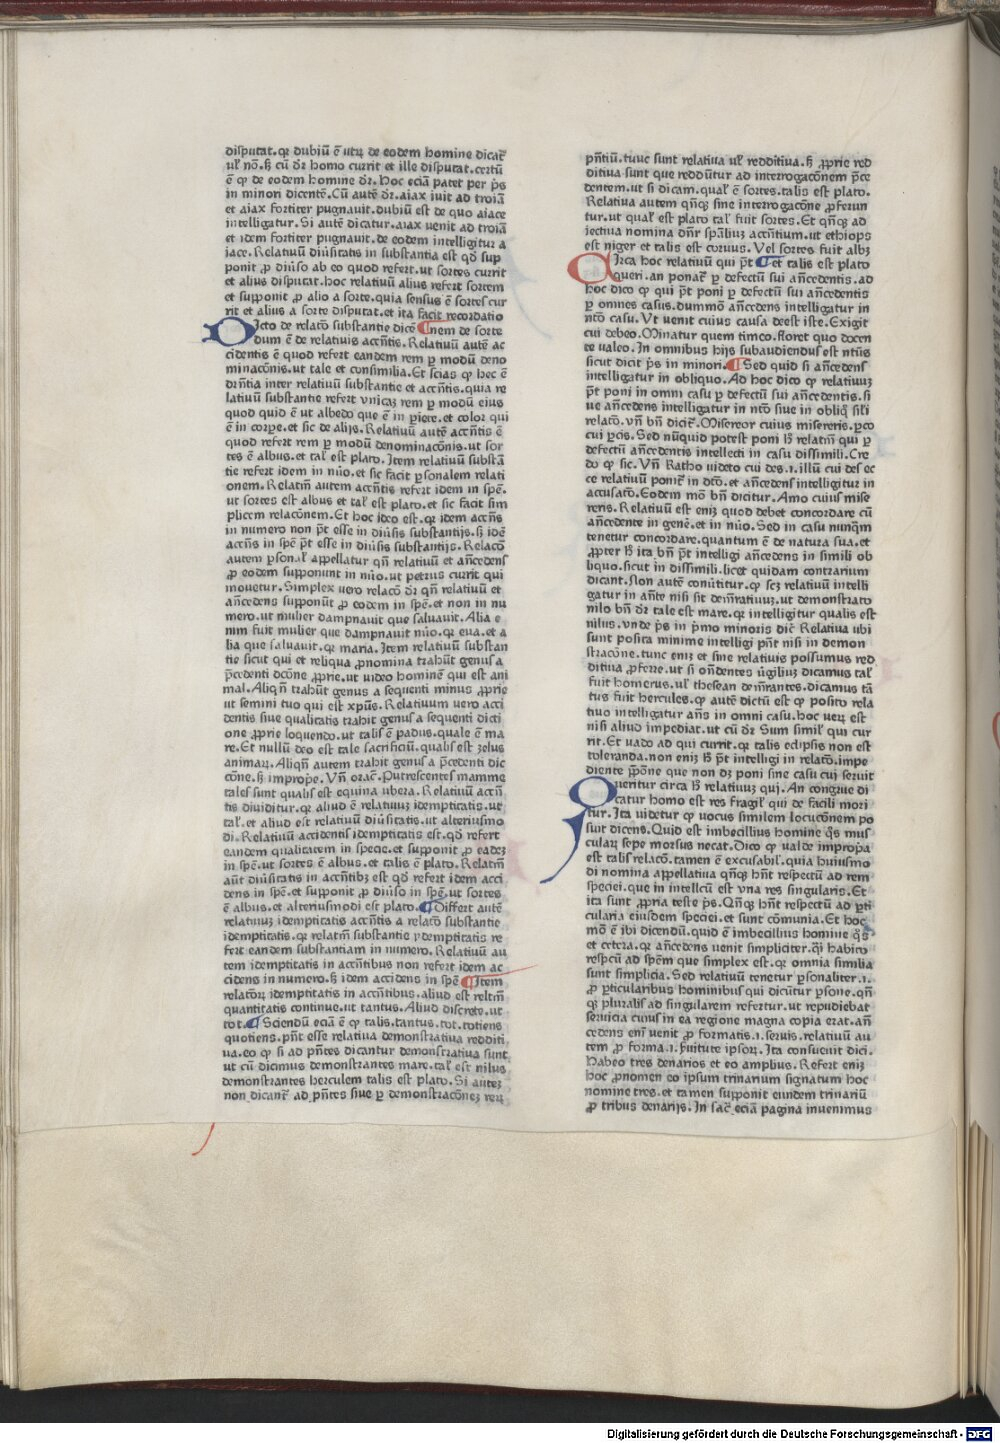 disputat.qꝛ dubiū ē utꝝ de eodem homine dicat̄
ul̓ nō.ꝫ cū dr̄ homo currit et ille disputat.certū
ē ꝙ de eodem homine dr̄.Hoc eciā patet per p̄s
in minori dicentē.Cū autē dr̄.aiax iuit ad troiā
et aiax fortiter pugnauit.dubiū est de quo aiace
intelligatur.Si autē dicatur.aiax uenit ad troiā
et idem fortiter pugnauit.de eodem intelligitur a
iace.Relatiuū diūsitatis in substantia est qd̄ sup
ponit ꝓ diūso ab eo quod refert.ut sortes currit
et alius disputat.hoc relatiuū alius refert sortem
et supponit ꝓ alio a sorte.quia sensus ē sortes cur
rit et alius a sorte disputat.et ita facit recordatio
Dicto de relatō substantie dicē ¶nem de sorte
dum ē de relatiuis accn̄tis.Relatiuū autē ac
cidentis ē quod refert eandem rem ꝑ modū deno
minacōnis.ut tale et consimilia.Et scias ꝙ hec ē
drn̄tia inter relatiuū substantie et accn̄tis.quia re
latiuū substantie refert vnicaꝫ rem ꝑ modū eius
quod quid ē ut albedo que ē in ꝑiete.et color qui
ē in corꝑe.et sic de alijs.Relatiuū autē accn̄tis ē
quod refert rem ꝑ modū denominacōnis.ut sor
tes ē albus.et tal̓ est plato.Item relatiuū substā
tie refert idem in nūo.et sic facit ꝑsonalem relati
onem.Relatm̄ autem accn̄tis refert idem in spē.
ut sortes est albus et tal̓ est plato.et sic facit sim
plicem relacōnem.Et hoc ideo est.qꝛ idem accn̄s
in numero non pt̄ esse in diūsis substantijs.ꝫ idē
accn̄s in spē pt̄ esse in diūsis substantijs.Relacō
autem ꝑsonal̓ appellatur qn̄ relatiuū et añcedens
ꝓ eodem supponunt in nūo.ut petrus currit qui
mouetur.Simplex uero relacō dr̄ qn̄ relatiuū et
añcedens supponūt ꝓ eodem in spē.et non in nu
mero.ut mulier dampnauit que saluauit.Alia e
nim fuit mulier que dampnauit nūo.qꝛ eua.et a
lia que saluauit.qꝛ maria.Item relatiuū substan
tie sicut qui et reliqua ꝓnomina trahūt genus a
p̄cedenti dcōne ꝓprie.ut video hominē qui est ani
mal.Aliqn̄ trahūt genus a sequenti minus ꝓprie
ut semini tuo qui est xp̄us.Relatiuum uero acci
dentis siue qualitatis trahit genus a sequenti dicti
one ꝓprie loquendo.ut talis ē padus.quale ē ma
re.Et nullū deo est tale sacrificiū.qualis est zelus
animaꝝ.Aliqn̄ autem trahit genus a p̄cedenti dic
cōne.ꝫ improꝑe.Vn̄ orac̄.Putrescentes mamme
tales sunt qualis est equina ubera.Relatiuū accn̄
tis diuiditur.qꝛ aliud ē relatiuuꝫ idemptitatis.ut
tal̓.et aliud est relatiuū diūsitatis.ut alteriusmo
di.Relatiuū accidentis idemptitatis est.qd̄ refert
eandem qualitatem in specie.et supponit ꝓ eadeꝫ
in spē.ut sortes ē albus.et talis ē plato.Relatm̄
aūt diūsitatis in accn̄tibꝫ est qd̄ refert idem acci
dens in spē.et supponit ꝓ diūso in spē.ut sortes
ē albus.et alteriusmodi est plato.¶Differt autē
relatiuuꝫ idemptitatis accn̄tis a relatō substantie
idemptitatis.qꝛ relatm̄ substantie ydemptitatis re
fert eandem substantiam in numero.Relatiuū au
tem idemptitatis in accn̄tibus non refert idem ac
cidens in numero.ꝫ idem accidens in spē ¶Item
relatoꝝ idemptitatis in accn̄tibus.aliud est reltm̄
quantitatis continue.ut tantus.Aliud discrete.ut
tot.¶Sciendū eciā ē ꝙ talis.tantus.tot.totiens
quotiens.pn̄t esse relatiua demonstratiua redditi
ua.eo ꝙ si ad pn̄tes dicantur demonstratiua sunt
ut cū dicimus demonstrantes mare.tal̓ est nilus
demonstrantes herculem talis est plato.Si auteꝫ
non dicant̄ ad pn̄tes siue ꝑ demonstracōneꝫ reꝝ
pn̄tiū.tunc sunt relatiua ul̓ redditiua.ꝫ ꝓprie red
ditiua sunt que reddūtur ad interrogacōnem p̄ce
dentem.ut si dicam.qual̓ ē sortes.talis est plato.
Relatiua autem qn̄qꝫ sine interrogacōne ꝓferun
tur.ut qual̓ est plato tal̓ fuit sortes.Et qn̄qꝫ ad
iectiua nomina dn̄r sp̄alius accn̄tium.ut ethiops
est niger et talis est coruus.Vel sortes fuit albꝫ
Circa hoc relatiuū qui pt̄ ¶et talis est plato
queri.an ponat̄ ꝑ defectū sui añcedentis.ad
hoc dico ꝙ qui pt̄ poni ꝑ defectū sui añcedentis
ꝑ omnes casus.dummō añcedens intelligatur in
ntō casu.Ut venit cuius causa deest iste.Exigit
cui debeo.Minatur quem timeo.floret quo docen
te ualeo.In omnibus hijs subaudiendus est ntūs
sicut dicit p̄s in minori.¶Sed quid si añcedens
intelligatur in obliquo.Ad hoc dico ꝙ relatiuuꝫ
pt̄ poni in omni casu ꝑ defectū sui añcedentis.si
ue añcedens intelligatur in ntō siue in obliq̄ sil̓i
relatō.vn̄ bn̄ dicit̄.Misereor cuius misereris.ꝑco
cui ꝑcis.Sed nūquid potest poni ħ relatm̄ qui ꝑ
defectū añcedentis intellecti in casu dissimili.Cre
do ꝙ sic.Vn̄ Katho uideto cui des.i.illū cui des ec
ce relatiuū ponit̄ in dtō.et añcedens intelligitur in
accusatō.Eodem mō bn̄ dicitur.Amo cuius mise
reris.Relatiuū est eniꝫ quod debet concordare cū
añcedente in genē.et in nūo.Sed in casu nunqm̄
tenetur concordare.quantum ē de natura sua.et
ꝓpter ħ ita bn̄ pt̄ intelligi añcedens in simili ob
liquo.sicut in dissimili.licet quidam contrarium
dicant.Non autē conūtitur.ꝙ scꝫ relatiuū intelli
gatur in ān̄te nisi sit dem̄ratiuuꝫ.ut demonstrato
nilo bn̄ dr̄ tale est mare.qꝛ intelligitur qualis est
nilus.vnde p̄s in p̄mo minoris dic̄ Relatiua ubi
sunt posita minime intelligi pn̄t nisi in demon
stracōne.tunc eniꝫ et sine relatiuis possumus red
ditiua ꝓferre.ut si on̄dentes ūgiliuꝫ dicamus tal̓
fuit homerus.ul̓ thesean dem̄rantes.dicamus tā
tus fuit hercules.ꝙ autē dictū est ꝙ posito rela
tiuo intelligatur añs in omni casu.hoc ueꝝ est
nisi aliud impediat.ut cū dr̄ Sum simil̓ qui cur
rit.Et uado ad qui currit.qꝛ talis eclipsis non est
toleranda.non eniꝫ ħ pt̄ intelligi in relatō.impe
diente p̄pōne que non dꝫ poni sine casu cui seruit
Queritur circa ħ relatiuuꝫ qui.An congrue di
catur homo est res fragil̓ qui de facili mori
tur.Ita uidetur ꝙ uocus similem locucōnem po
suit dicens.Quid est imbecillius homine q̄s mus
culaꝝ sepe morsus necat.Dico ꝙ valde impropꝛa
est talis relacō.tamen ē excusabil̓.quia huiusmo
di nomina appellatiua qn̄qꝫ hn̄t respectū ad rem
speciei.que in intellcū est vna res singularis.Et
ita sunt ꝓpria teste p̄s.Qn̄qꝫ hn̄t respectū ad ꝑti
cularia eiusdem speciei.et sunt cōmunia.Et hoc
mō ē ibi dicendū.quid ē imbecillius homine q̄s
et cetera.qꝛ añcedens uenit simpliciter.q̄i habito
respcū ad spēm que simplex est.qꝛ omnia similia
sunt simplicia.Sed relatiuū tenetur ꝑsonaliter.i.
ꝓ ꝑticularibus hominibus qui dicūtur ꝑsone.qn̄
qꝫ pluralis ad singularem refertur.ut repudiebat
seruicia cuius in ea regione magna copia erat.añ
cedens enī uenit ꝓ formatis.i.seruis.relatiuū au
tem ꝓ forma.i.ẜuitute ipsoꝝ.Ita consueuit dici.
Habeo tres denarios et eo amplius.Refert eniꝫ
hoc ꝓnomen eo ipsum trinarium signatum hoc
nomine tres.et tamen supponit eundem trinariū
ꝓ tribus denarijs.In sac̄ eciā pagina inuenimus
Digitalisierung gefördert durch die Deutsche Forschungsgemeinschaft - DFG